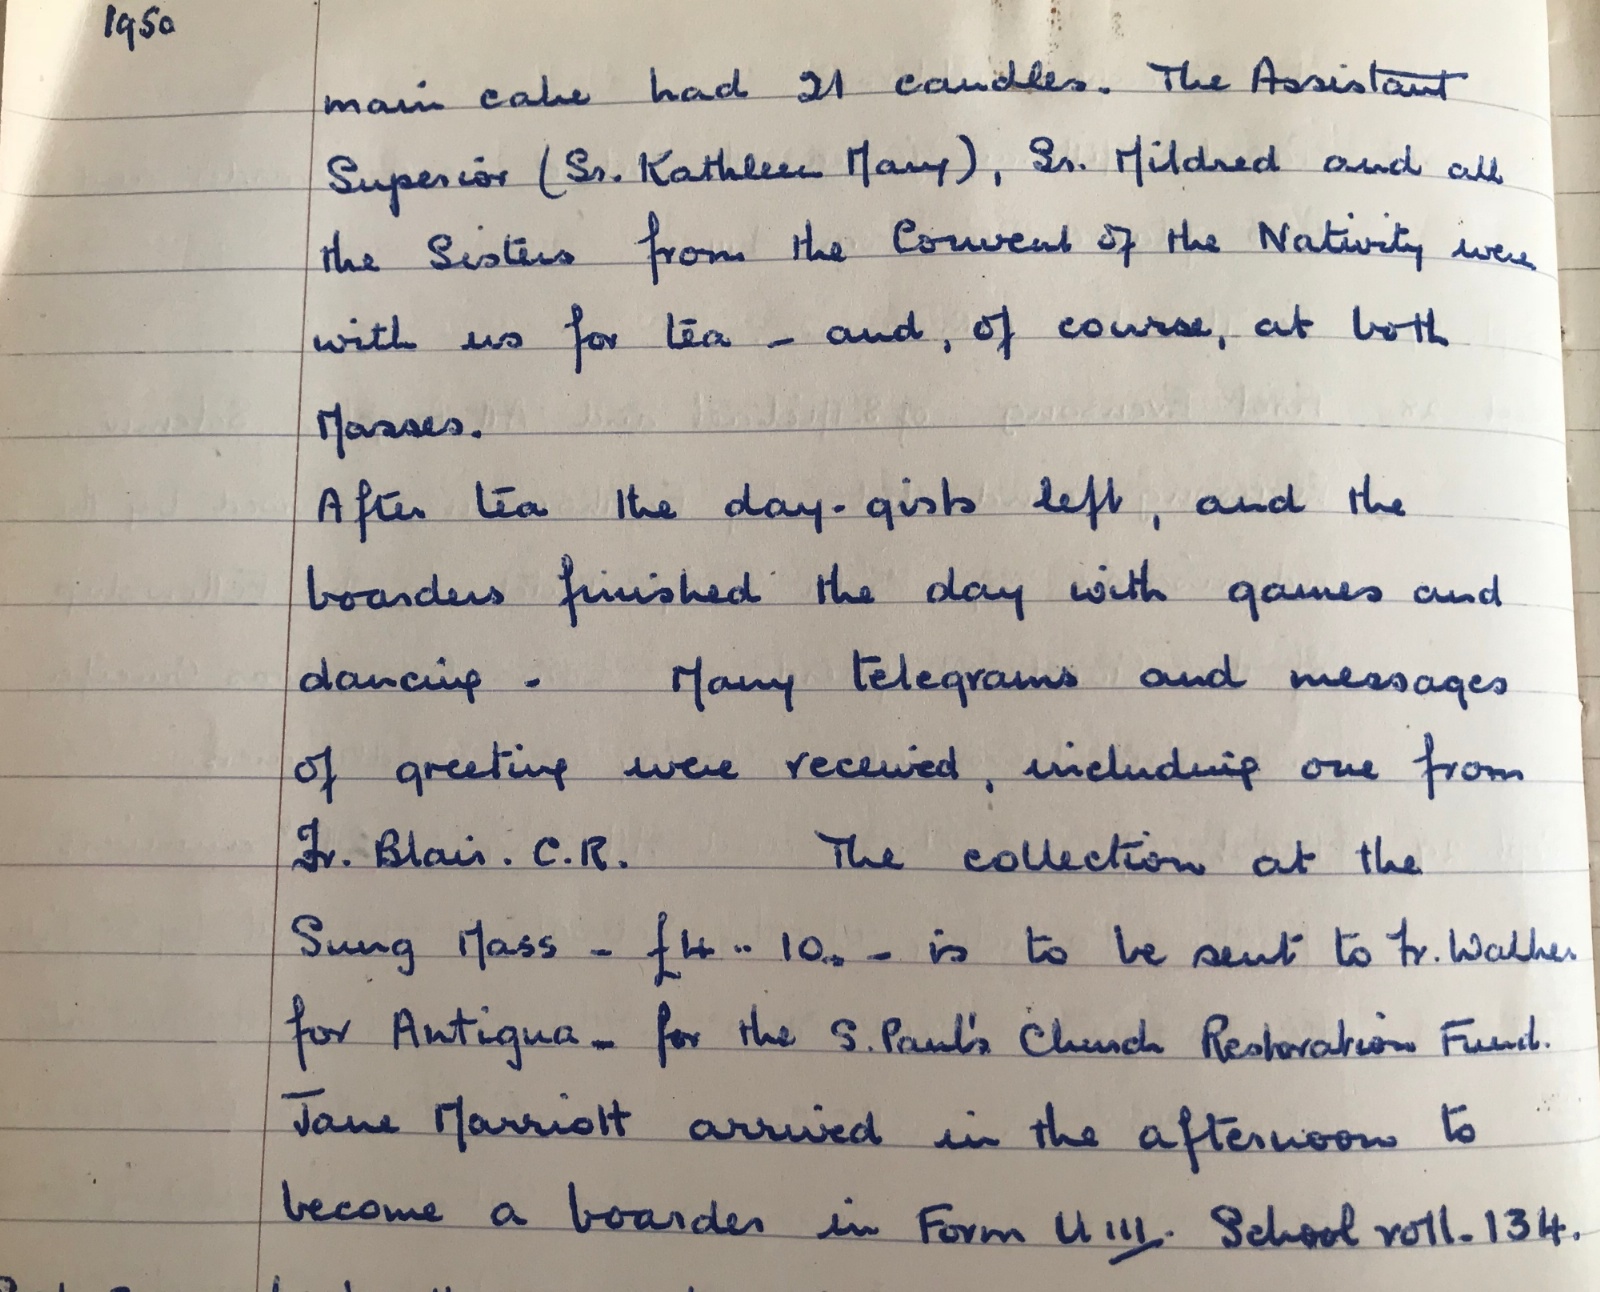 1950
main cake had 21 candles. The Assistant
Superior (Sr. Kathleen Mary), Sr. Mildred and all
the Sisters from the Convent of the Nativity were
with us for tea – and, of course, at both
Masses.
After tea the day-girls left, and the
boarders finished the day with games and
dancing. Many telegrams and messages
of greeting were received, including one from
Fr. Blair. C.R. The collection at the
Sung Mass – £4 .. 10.. – is to be sent to Fr. Walker
for Antigua – for the S. Paul's Church Restoration Fund.
Jane Marriott arrived in the afternoon to
become a boarder in Form U III. School roll – 134.